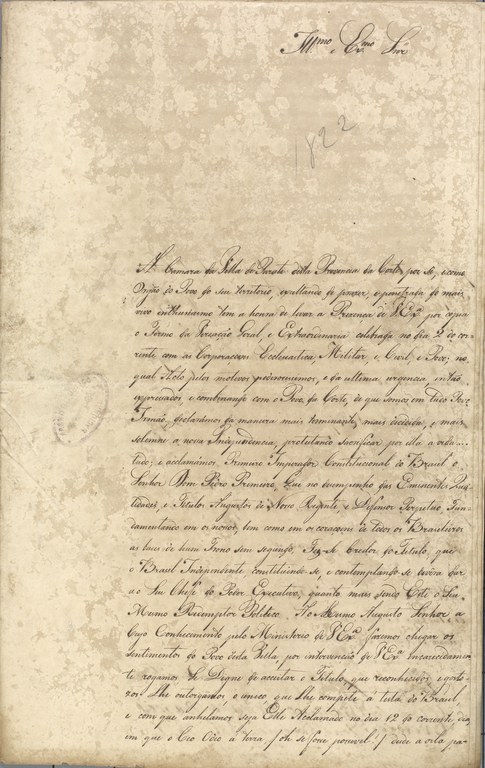 Ill.mo e Ex.mo Snr
1822
A Camara da Villa de Parati desta Provincia da Corte, por si, e como
Orgão do Povo do seu territorio, exultando de prazer, e penetrada do mais
vivo enthusiasmo tem a honra de levar a Presença de V Ex.a por copia
o Termo da Vereação Geral, e Extraordinaria celebrada no dia 2 do cor-
rente com as Corporacoens Ecclesiastica, Militar, e Civil, e Povo; no
qual Acto, pelos motivos e da ultima urgencia, então
expressados e combinando com o Povo da Corte, de que somos em tudo Povo
Irmão, declarámos da maneira mais terminante, mais decidida, e mais
solemne a nossa Independencia, protestando sacrificar por ella a vida...
tudo; e acclamámos Primeiro Imperador Constitucional do Brasil o
Senhor Dom Pedro Primeiro, que no desempenho das Eminentes Qua-
lidades, e Titulos Augustos de Nosso Regente, e Defensor Perpetuo, Fun-
damentando em os nossos, bem como em os coraçoens de todos os Brasileiros
as bases de hum Trono sem segundo, Fez-se credor do Titulo, que
o Brasil Independente constituindo-se, e contemplando-se devera dar
ao Seu Chefe do Poder Executivo, quanto mais sendo Este o Seu
Mesmo Redemptor Politico. Ao Mesmo Augusto Senhor, a
Cujo Conhecimento pelo Ministerio de V Ex.a faremos chegar os
sentimentos do Povo desta Villa, por intervenção de V Ex.a encarecidamen-
te rogamos, Se Digne de acceitar o Titulo, que reconhecidos, e gosto-
zos Lhe outorgamos o unico, que Lhe compete á testa do Brasil,
e com que anhelamos seja Elle Acclamado no dia 12 do corrente, dia
em que o Ceo Odeo á terra (oh se fosse possivel!) desde a orla